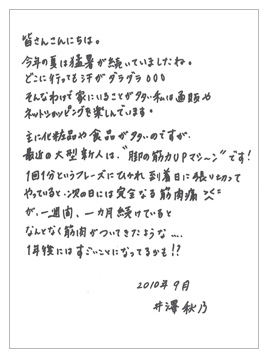 皆さんこんにちは。
今年の夏は猛暑が続いていましたね。
どこに行っても汗がダラダラ。。。
そんなわけで家にいることが多い私は通販や
ネットショッピングを楽しんでいます。
主に化粧品や食品が多いのですが、
最近の大型新人は、"脚の筋力UPマシ〜ン"です！
1回1分というフレーズにひかれ到着日に張り切って
やっていると、次の日には完全なる筋肉痛
が、一週間、一カ月続けていると
なんとなく筋肉がついてきたような....
1年後にはすごいことになってるかも!?
2010年9月
井澤秋乃